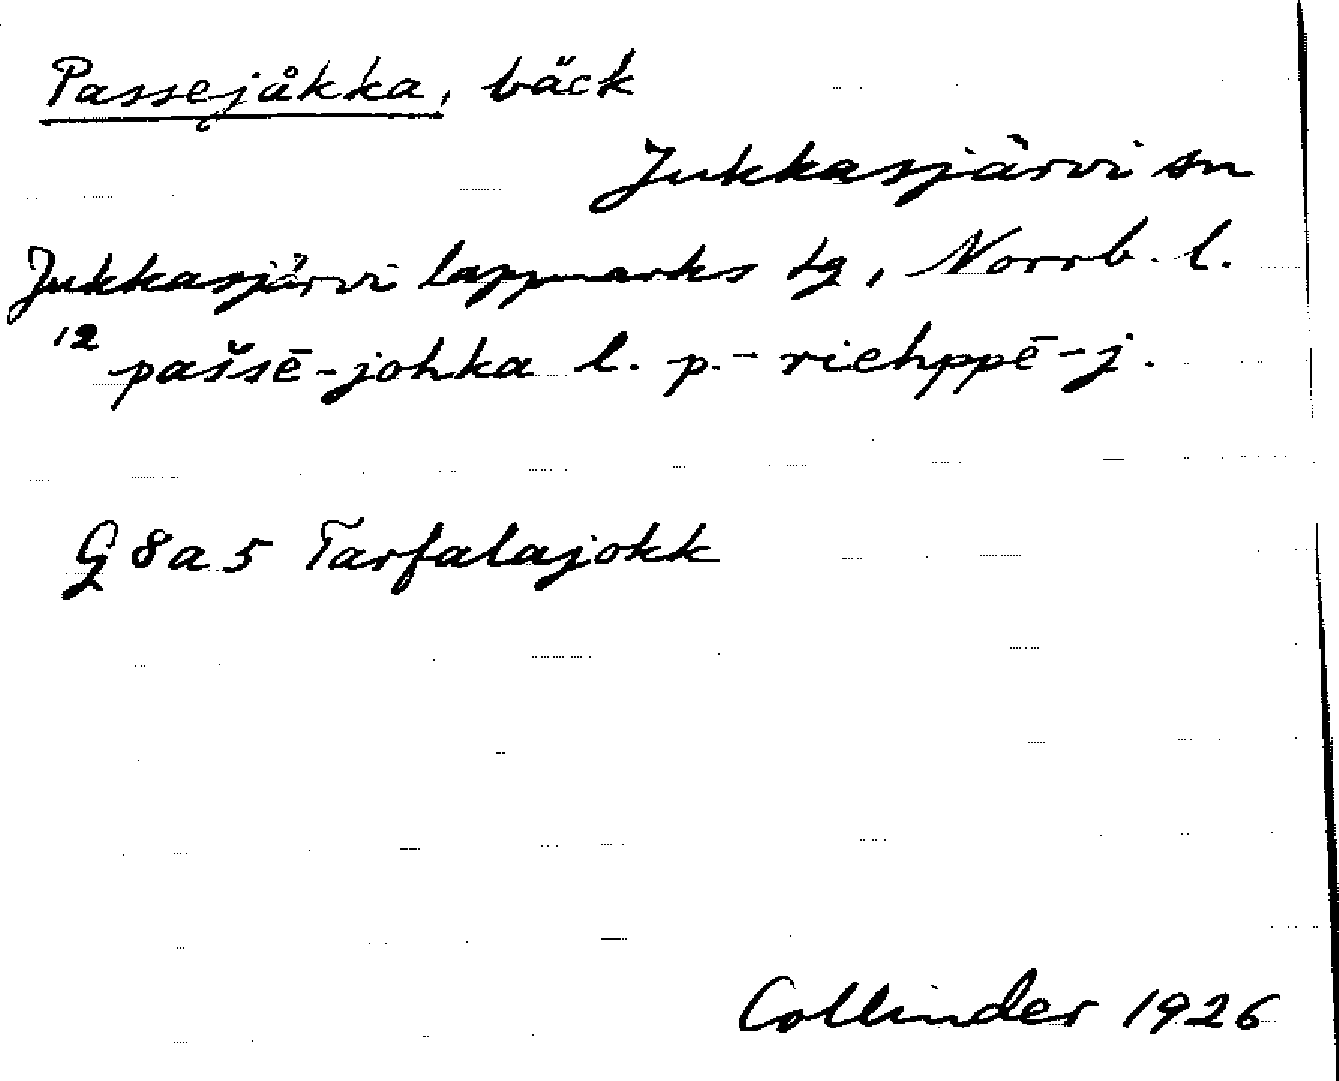 Passejåkka, bäck
Jukkasjärvi sn
Jukkasjärvi lappmarks tg, Norrb. l.
12 pašsē-johka l. p.-riehppē-j.
G 8 a 5 Tarfalajokk
Collinder 1926